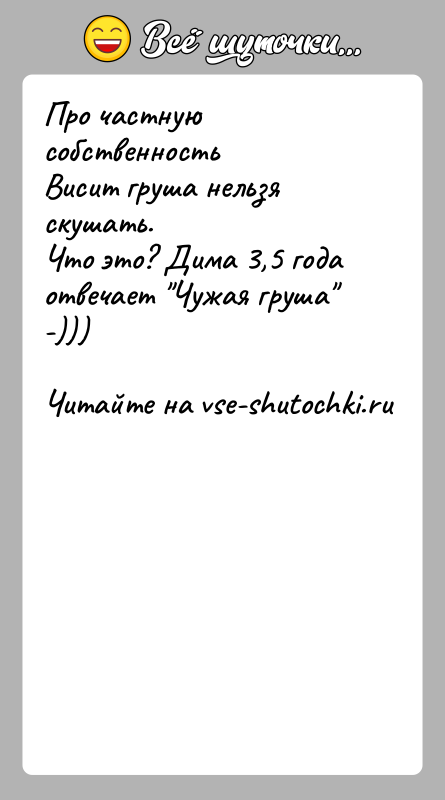 Всё шуточки...
Про частную
собственность
Висит груша нельзя
скушать.
Что это? Дима 3,5 года
отвечает "Чужая груша"
-)))
Читайте на vse-shutochki.ru